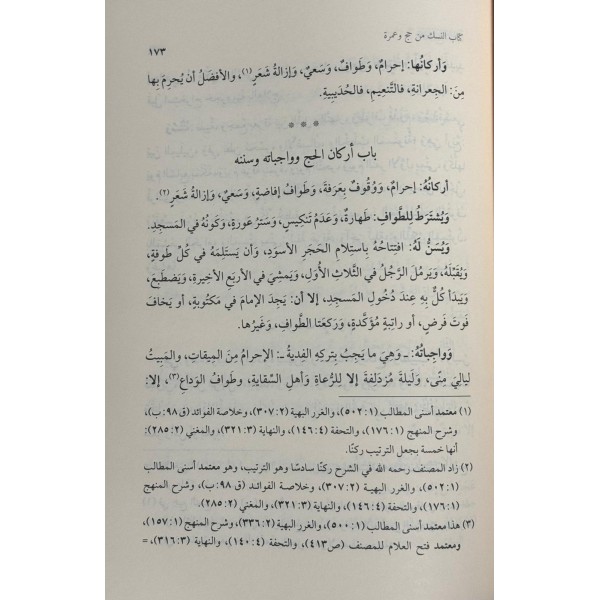 كتاب النسك من حج وعمرة
١٧٣
وَأركانُها: إحرامٌ، وَطَوافٌ، وَسَعيٌ، وَإزالةُ شَعَرٍ(١)، والأفضَلُ أن يُحرِمَ بها
مِنَ: الجِعرانةِ، فالتَّنعِيمِ، فالحُدَيبِيةِ.
* * *
باب أركان الحج وواجباته وسننه
أركانُهُ: إحرامٌ، وَوُقُوفٌ بِعَرَفةَ، وَطَوافُ إفاضةٍ، وَسَعيٌ، وَإزالةُ شَعَرٍ(٢).
وَيُشتَرَطُ لِلطَّوافِ: طَهارةٌ، وَعَدَمُ تَنكِيسٍ، وَسَترُ عَورةٍ، وَكَونُهُ في المَسجِدِ.
وَيُسَنُّ لَهُ: افتِتاحُهُ بِاستِلامِ الحَجَرِ الأسوَدِ، وَأن يَستَلِمَهُ في كُلِّ طَوفةٍ،
وَيُقَبِّلَهُ، وَيَرمُلَ الرَّجُلُ في الثَّلاثِ الأُوَلِ، وَيَمشِيَ في الأربَعِ الأخِيرةِ، وَيَضطَبِعَ،
وَيَبدَأَ كُلٌّ بِهِ عِندَ دُخُولِ المَسجِدِ، إلا أن: يَجِدَ الإمامَ في مَكتُوبةٍ، أو يَخافَ
فَوتَ فَرضٍ، أو راتِبةٍ مُؤَكَّدةٍ، وَرَكعَتا الطَّوافِ، وَغَيرُها.
وَواجِباتُهُ: ـ وَهِيَ ما يَجِبُ بِتَركِهِ الفِديةُ ـ: الإحرامُ مِنَ المِيقاتِ، والمَبِيتُ
لَيالِيَ مِنًى، وَلَيلةَ مُزدَلِفةَ إلا لِلرُّعاةِ وَأهلِ السِّقايةِ، وَطَوافُ الوَداعِ(٣)، إلا:
(١) معتمد أسنى المطالب (١: ٥٠٢)، والغرر البهية (٢: ٣٠٧)، وخلاصة الفوائد (ق٩٨: ب)،
وشرح المنهج (١: ١٧٦)، والتحفة (٤: ١٤٦)، والنهاية (٣: ٣٢١)، والمغني (٢: ٢٨٥):
أنها خمسة بجعل الترتيب ركنًا.
(٢) زاد المصنف رحمه الله في الشرح ركنًا سادسًا وهو الترتيب، وهو معتمد أسنى المطالب
(١: ٥٠٢)، والغرر البهية (٢: ٣٠٧)، وخلاصة الفوائد (ق٩٨: ب)، وشرح المنهج
(١: ١٧٦)، والتحفة (٤: ١٤٦)، والنهاية (٣: ٣٢١)، والمغني (٢: ٢٨٥).
(٣) هذا معتمد أسنى المطالب (١: ٥٠٠)، والغرر البهية (٢: ٣٣٦)، وشرح المنهج (١: ١٥٧)،
ومعتمد فتح العلام للمصنف (ص٤١٣)، والتحفة (٤: ١٤٠)، والنهاية (٣: ٣١٦)، =